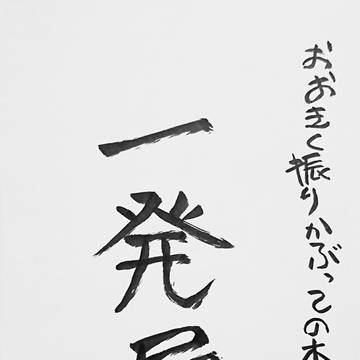 おおきく振りかぶっての本
一発屋